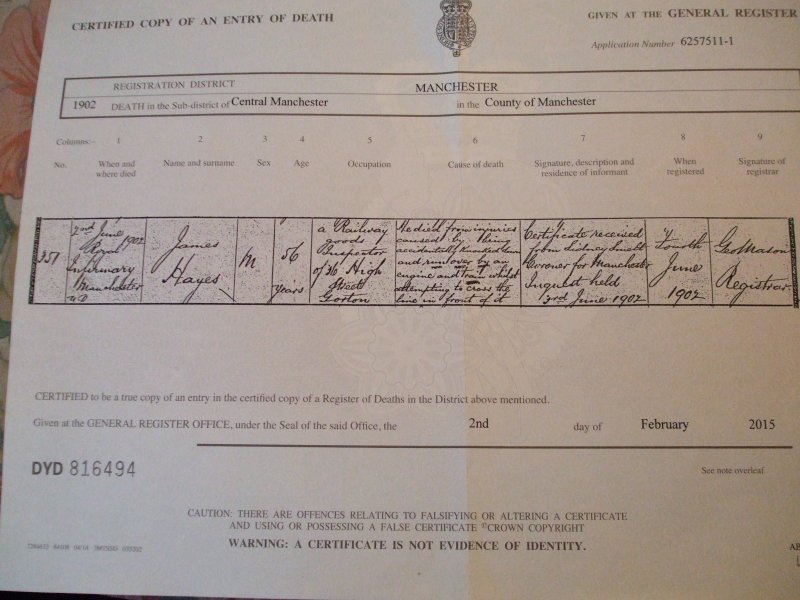 CERTIFIED COPY OF AN ENTRY OF DEATH
GIVEN AT THE GENERAL REGISTER
Application Number 6257511-1
REGISTRATION DISTRICT MANCHESTER
1902 DEATH in the Sub-district of Central Manchester in the County of Manchester
Columns:- 1 2 3 4 5 6 7 8 9
No. When and where died Name and surname Sex Age Occupation Cause of death Signature, description and residence of informant When registered Signature of registrar
351
2nd June
1902
Royal
Infirmary
Manchester
U.D
James
Hayes
M
56
years
a Railway
goods
Inspector
of 36 High
Street
Gorton
He died from injuries
caused by being
accidentally knocked down
and run over by an
engine and train whilst
attempting to cross the
line in front of it
Certificate received
from Sidney Smelt
Coroner for Manchester
Inquest held
3rd June 1902
Fourth
June
1902
Geo Mason
Registrar
CERTIFIED to be a true copy of an entry in the certified copy of a Register of Deaths in the District above mentioned.
Given at the GENERAL REGISTER OFFICE, under the Seal of the said Office, the 2nd day of February 2015
DYD 816494
See note overleaf
CAUTION: THERE ARE OFFENCES RELATING TO FALSIFYING OR ALTERING A CERTIFICATE
AND USING OR POSSESSING A FALSE CERTIFICATE ©CROWN COPYRIGHT
WARNING: A CERTIFICATE IS NOT EVIDENCE OF IDENTITY.